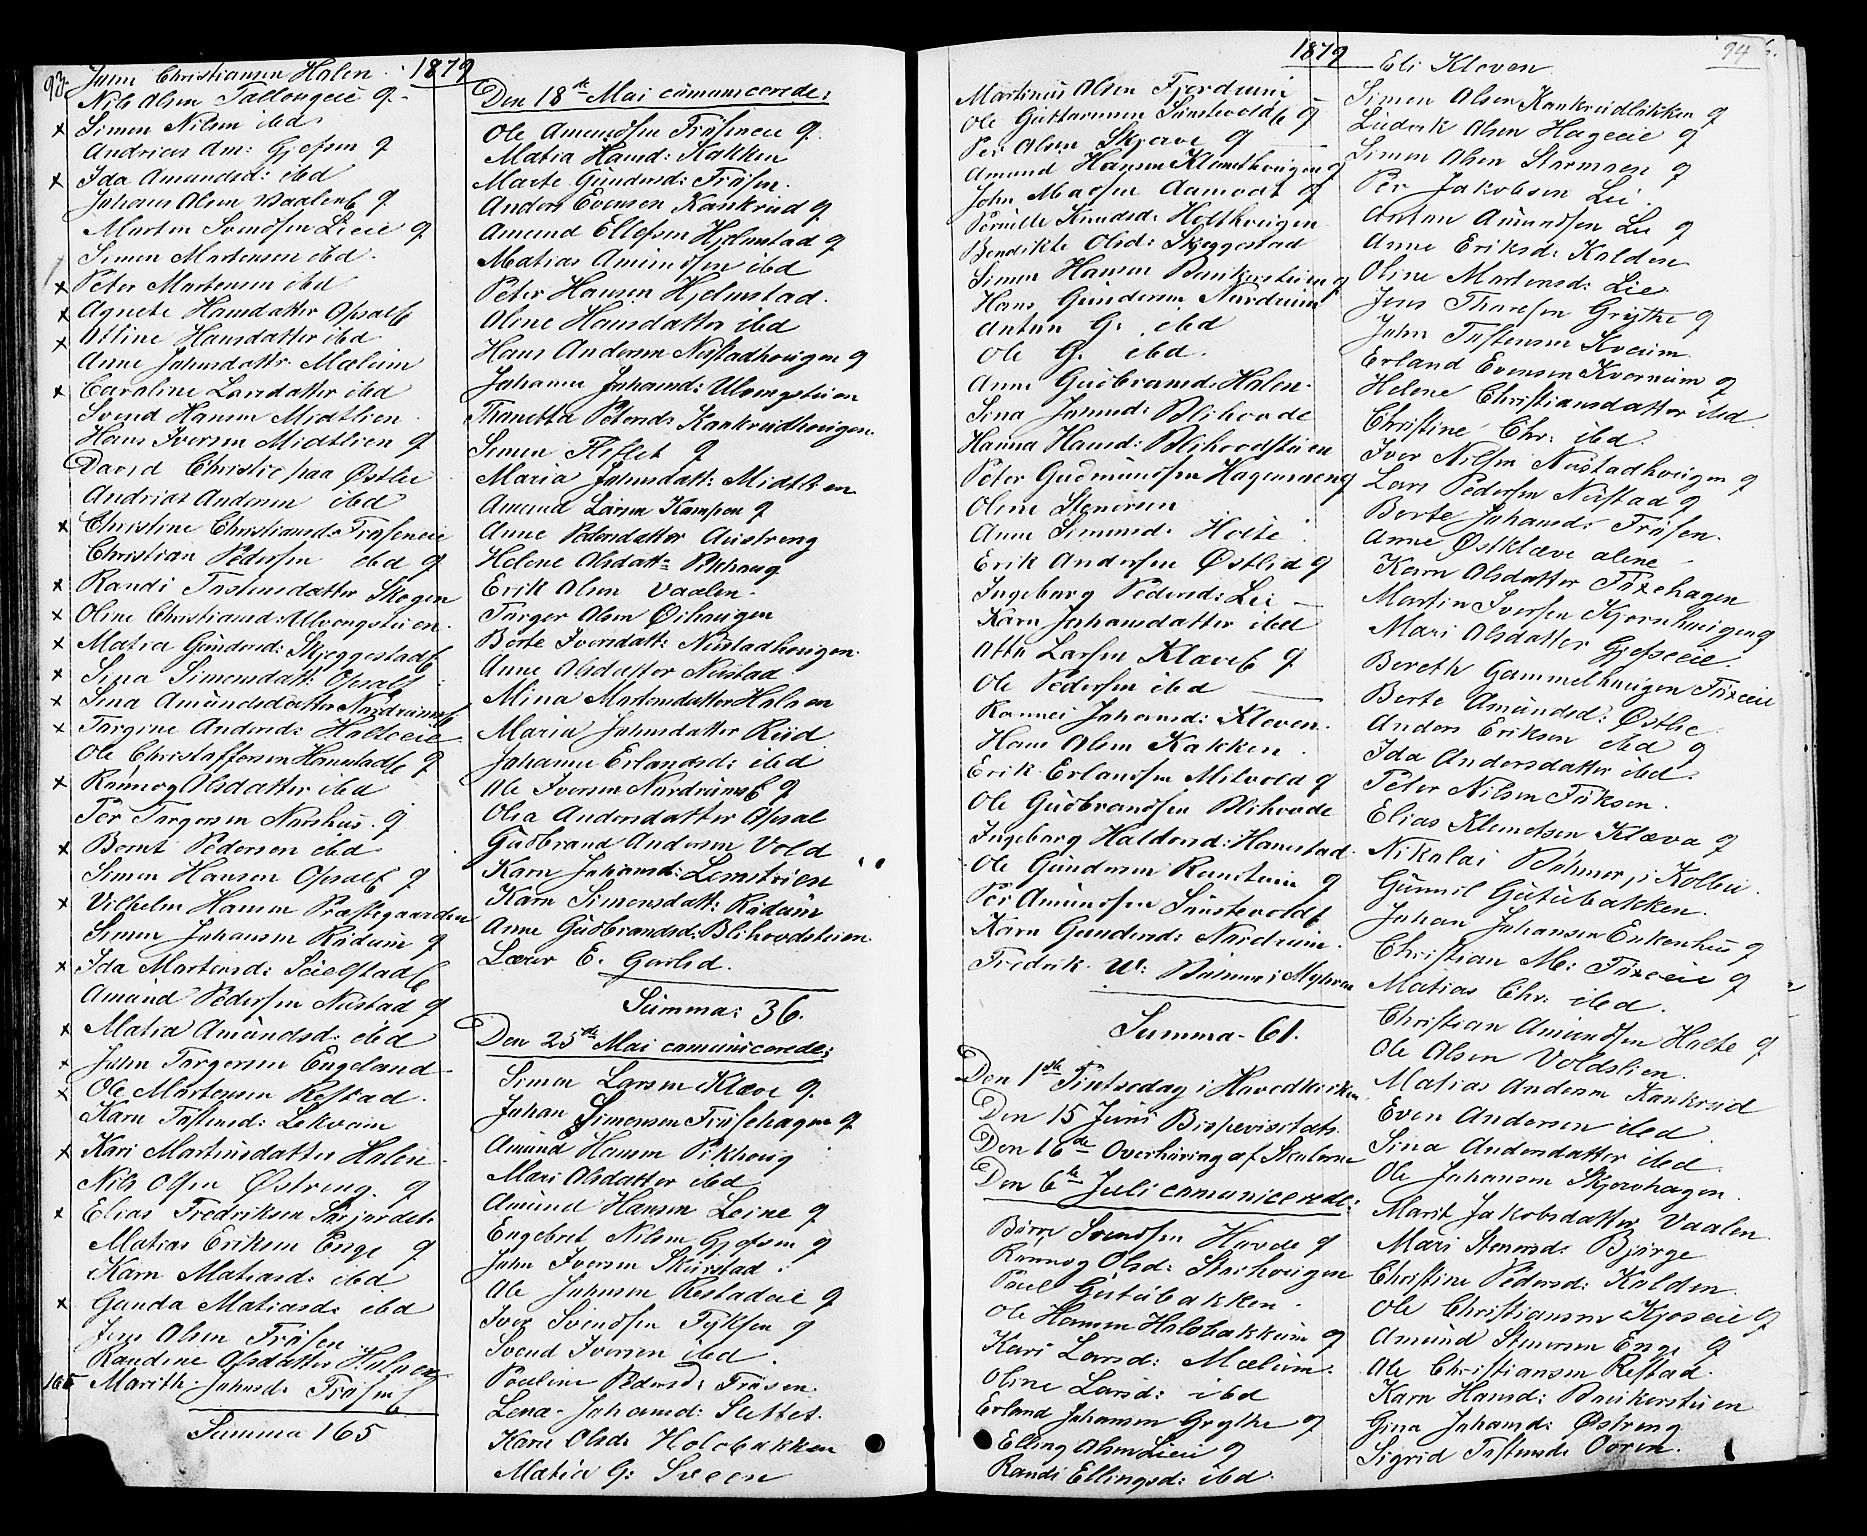 93.
1879
Jens Christiansen Halen.
Nils Olsen Tallougeie q.
x Simen Nilsen ibd
Andrias Am: Gjefsen q
x Ida Amundsd: ibd
Johans Olsen Vaalen q.
Morten Svendsen Lieie q
Simen Martensen ibd.
x Peter Martensen ibd
x Agnete Hansdatter Opsal
x Olline Hansdatter ibd
Anne Johnsdatter Mælum
x Caroline Larsdatter ibd
Svend Hansen Midtlien
Hans Iversen Midtlien q
David Christie paa Østlie
Andrias Andersen ibd
x Christine Christiansd: Frøseneie
Christian Pedersen ibd q
x Randi Tostensdatter Skogen
x Oline Christiansd: Ulvengstuen.
x Matea Gundersd: Skjeggestad
x Sina Simensdatt: Opsal
x Sina Amundsdatter Nordrum
x Torgine Andersd: Holteeie
Ole Christoffersen Hanestad q
x Rønnog Olsdatter ibd
Per Torgersen Norshus. q
x Bernt Pedersen ibd
Simen Hansen Opsal q
x Vilhelm Hansen Præstegaarden
Simen Johansen Rødum q
x Ida Martensd: Seielstad
Amund Pedersen Nustad q
x Matea Amundsd: ibd
x John Torgersen Engeland
x Ole Mortensen Restad.
Karn Tostensd: Lekvam
x Kari Martinusdatter Halen
Nils Olsen Østreng. q
x Elias Fredriksen Sørjordet.
Matias Eriksen Enge q
Karn Matiasd: ibd
x Gunda Matiasd: ibd
Jens Olsen Frøsen
Randine Olsdatter
165 Marith. Johnsd: Frøsen
Summa 165
Den 18de Mai comunicerede:
Ole Amundsen Frøseneie q.
Matia Hansd: Kakken
Marte Gundersd: Frøsen.
Anders Evensen Kankrud q
Amund Ellefsen Hjelmstad q
Matias Amundsen ibd
Peter Hansen Hjelmstad.
Oline Hansdatter ibd
Hans Andersen Nustadhougen q
Johanne Johansd: Ulvengstuen
Thonetta Petersd: Kankrudhougen.
Simen Slettet q
Maria Johnsdatt: Midtlien
Amund Larsen Kampen q
Anne Pedersdatter Austreng
Helene Olsdatt: Pikhaug
Erik Olsen Vaalen.
Torger Olsen Øihaugen
Berte Iversdatt: Nustadhougen.
Anne Olsdatter Nustad
Mina Mortensdatter Halsen
Maria Johnsdatter Rud
Johanne Erlandsd: ibd
Ole Iversen Nordrum q
Olea Andersdatter Opsal
Gudbrand Andersen Vold
Karn Johansd: Lemstuen
Karn Simensdatt: Rødum
Anne Gudbrandsd: Blihovdstuen.
Lærer E. Garlid.
Summa: 36.
Den 25de Mai comunicerede:
Simen Larsen Klæve q.
Johan Simensen Frøsehagen q
Amund Hansen Pikhoug
Mari Olsdatter ibd
Amund Hansen Leine q
Engebret Nilsen Gjefsen q
John Iversen Skurstad.
Ole Johnsen Restadeie q
Iver Svendsen Tyksen q
Svend Iversen ibd.
Pauline Pedersd: Frøsen.
Lena Johansd: Slettet.
Karn Olsd: Holobakken
Matia G: Sveen
1879
94
Martinus Olsen Fjerdrum
Ole Guttormsen Sønstevold q
Per Olsen Skjæve q
Amund Hansen Klomsthougen q
John Madsen Aamodt q
Pernille Knudsd: Holthougen
Bendikte Olsd: Skjeggestad
Simen Hansen Bunkerstuen q
Hans Gundersen Nordrum
Anton G: ibd
Ole G. ibd.
Anne Gudbrandsd: Halen.
Sina Johnsd: Blihovde
Hanna Hansd: Blihovdstuen
Peter Gudmundsen Hagenæeng
Oline Stenersen
Anne Simensd: Holte
Erik Andersen Østlid q
Ingeborg Pedersd: Lei
Karn Johansdatter ibd
Otto Larsen Klæve q
Ole Pedersen ibd
Rønnei Johansd: Kloven.
Hans Olsen Kakken.
Erik Erlandsen Milvold q
Ole Gudbrandsen Blihovde
Ingeborg Haldorsd: Hanestad.
Ole Gundersen Runstuen q
Per Amundsen Sønstevold
Karn Gundersd: Nordrum.
Fredrik W: Bøhmer, Myhren
Summa. 61.
Den 1ste Pintsedag i Hovedkirken
Den 15 Juni Bispevisitats.
Den 16de Overhøring af Skolerne
Den 6te Juli comunicerede:
Børre Svendsen Hovde q
Rønnog Olsd: Starhougen
Paul Gutubakken.
Ole Hansen Holobakkun q
Kari Larsd: Mælum.
Oline Larsd: ibd
Erland Johansen Grytke q
Elling Olsen Lieie q
Randi Ellingsd: ibd.
Eli Kloven.
Simen Olsen Kankrudløkken q
Ludvik Olsen Hageeie q
Simen Olsen Stormoen q
Per Jakobsen Lie.
Anton Amundsen Lie q
Anne Eriksd: Kolden
Oline Mortensd: Lie
Jens Thoresen Grytke q
John Tostensen Kvam.
Erland Evensen Kvernum q
Helene Christiansdatter ibd.
Christine Chr: ibd.
Iver Nilsen Nustadhougen q
Lars Pedersen Nustad q
Berte Johansd: Frøsen.
Anne Østklæve alene
Karn Olsdatter Foxehagen
Martin Iversen Kjernhougen q
Mari Olsdatter Gjefseeie.
Bereth Gammelhougen Foxeeie
Berte Amundsd: Østlie.
Anders Eriksen ibd q
Ida Andersdatter ibd.
Peter Nilsen Foksen.
Elias Klemetsen Klæva q
Nikolai Bøhmer, i Kollen.
Gunnil Gutubakken.
Johan Johansen Enkenhus q
Christian M: Foxeeie q
Matias Chr: ibd.
Christian Amundsen Holte q
Ole Olsen Voldslien.
Matias Andersen Kankrud
Even Andersen ibd.
Sina Andersdatter ibd
Ole Johansen Skjævhagen.
Marit Jakobsdatter Vaalen
Mari Stenersd: Bjørge
Christine Pedersd: Kolden.
Ole Christiansen Kjoseie q
Amund Stenersen Enge q
Ole Christiansen Restad.
Karn Hansd: Bunkerstuen
Gina Johansd: Østreng
Sigrid Tostensd: Ooren.